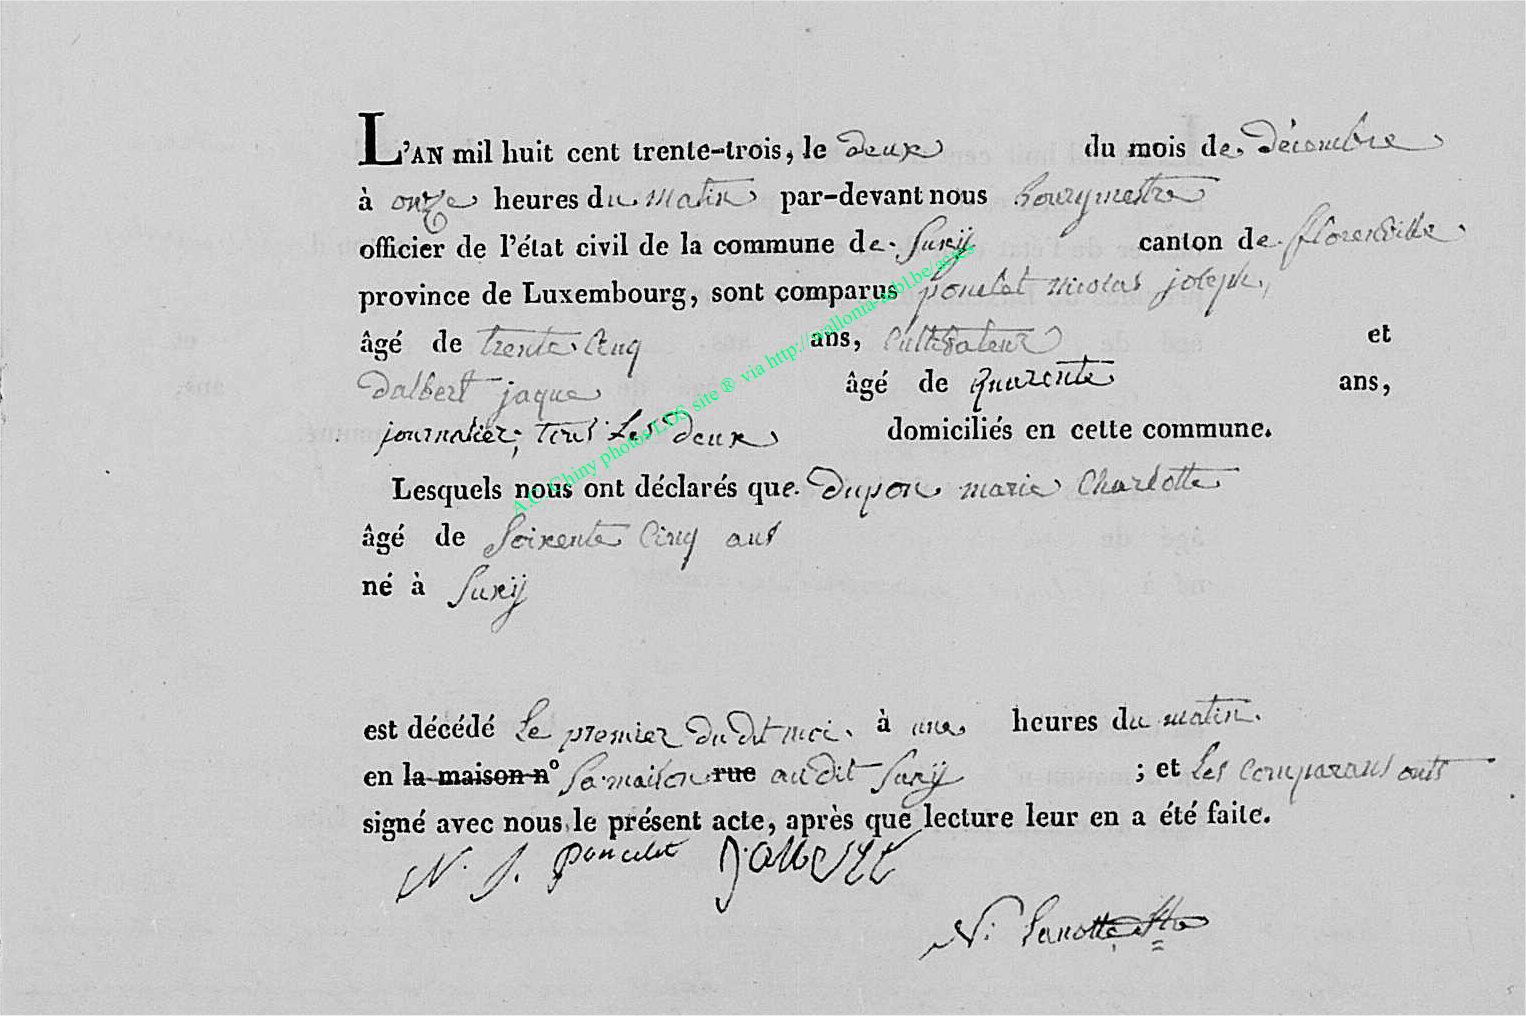 L'AN mil huit cent trente-trois, le deux du mois de Décembre
à onze heures du matin par-devant nous bourgmestre
officier de l'état civil de la commune de Suxÿ canton de florenville
province de Luxembourg, sont comparus poncelet nicolas joseph,
âgé de trente Cinq ans, Cultivateur et
Dalbert jaque âgé de Quarente ans,
journalier, tous Les deux domiciliés en cette commune.
Lesquels nous ont déclarés que Dupon marie Charlotte
âgé de Soixente Cinq ans
né à Suxÿ
est décédé Le premier Du dit moi à une heures du matin.
en la maison nº Sa maison rue au dit Suxÿ ; et Les Comparans onts
signé avec nous le présent acte, après que lecture leur en a été faite.
N. J. Poncelet Dalbert
N. Lanotte
A.C. Chiny photos LDS site ® via http://wallonia-asbl.be/actes